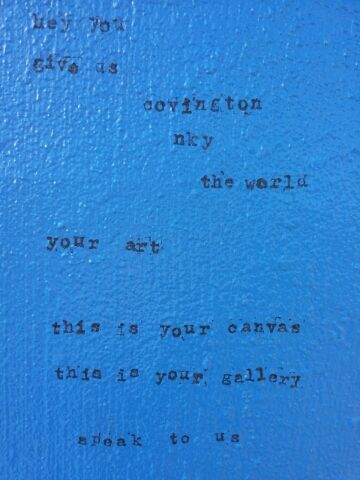 Hey you
give us
covington
nky
the world
your art
this is your canvas
this is your gallery
speak to us